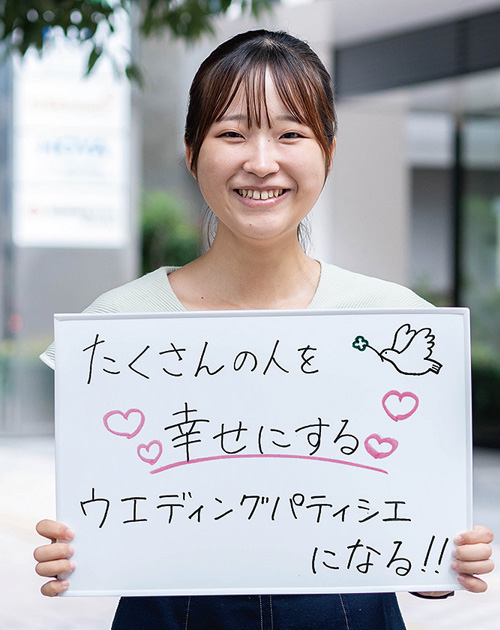 たくさんの人を
幸せにする
ウエディングパティシエ
になる!!